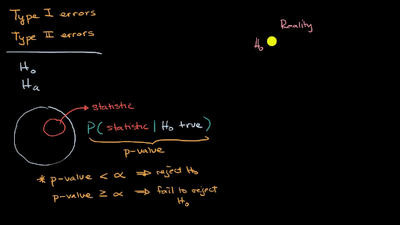 Type I errors
Type II errors
H₀
Hₐ
statistic
P(statistic | H₀ true)
p-value
* p-value < α ⇒ reject H₀
p-value ≥ α ⇒ fail to reject
H₀
Reality
H₀